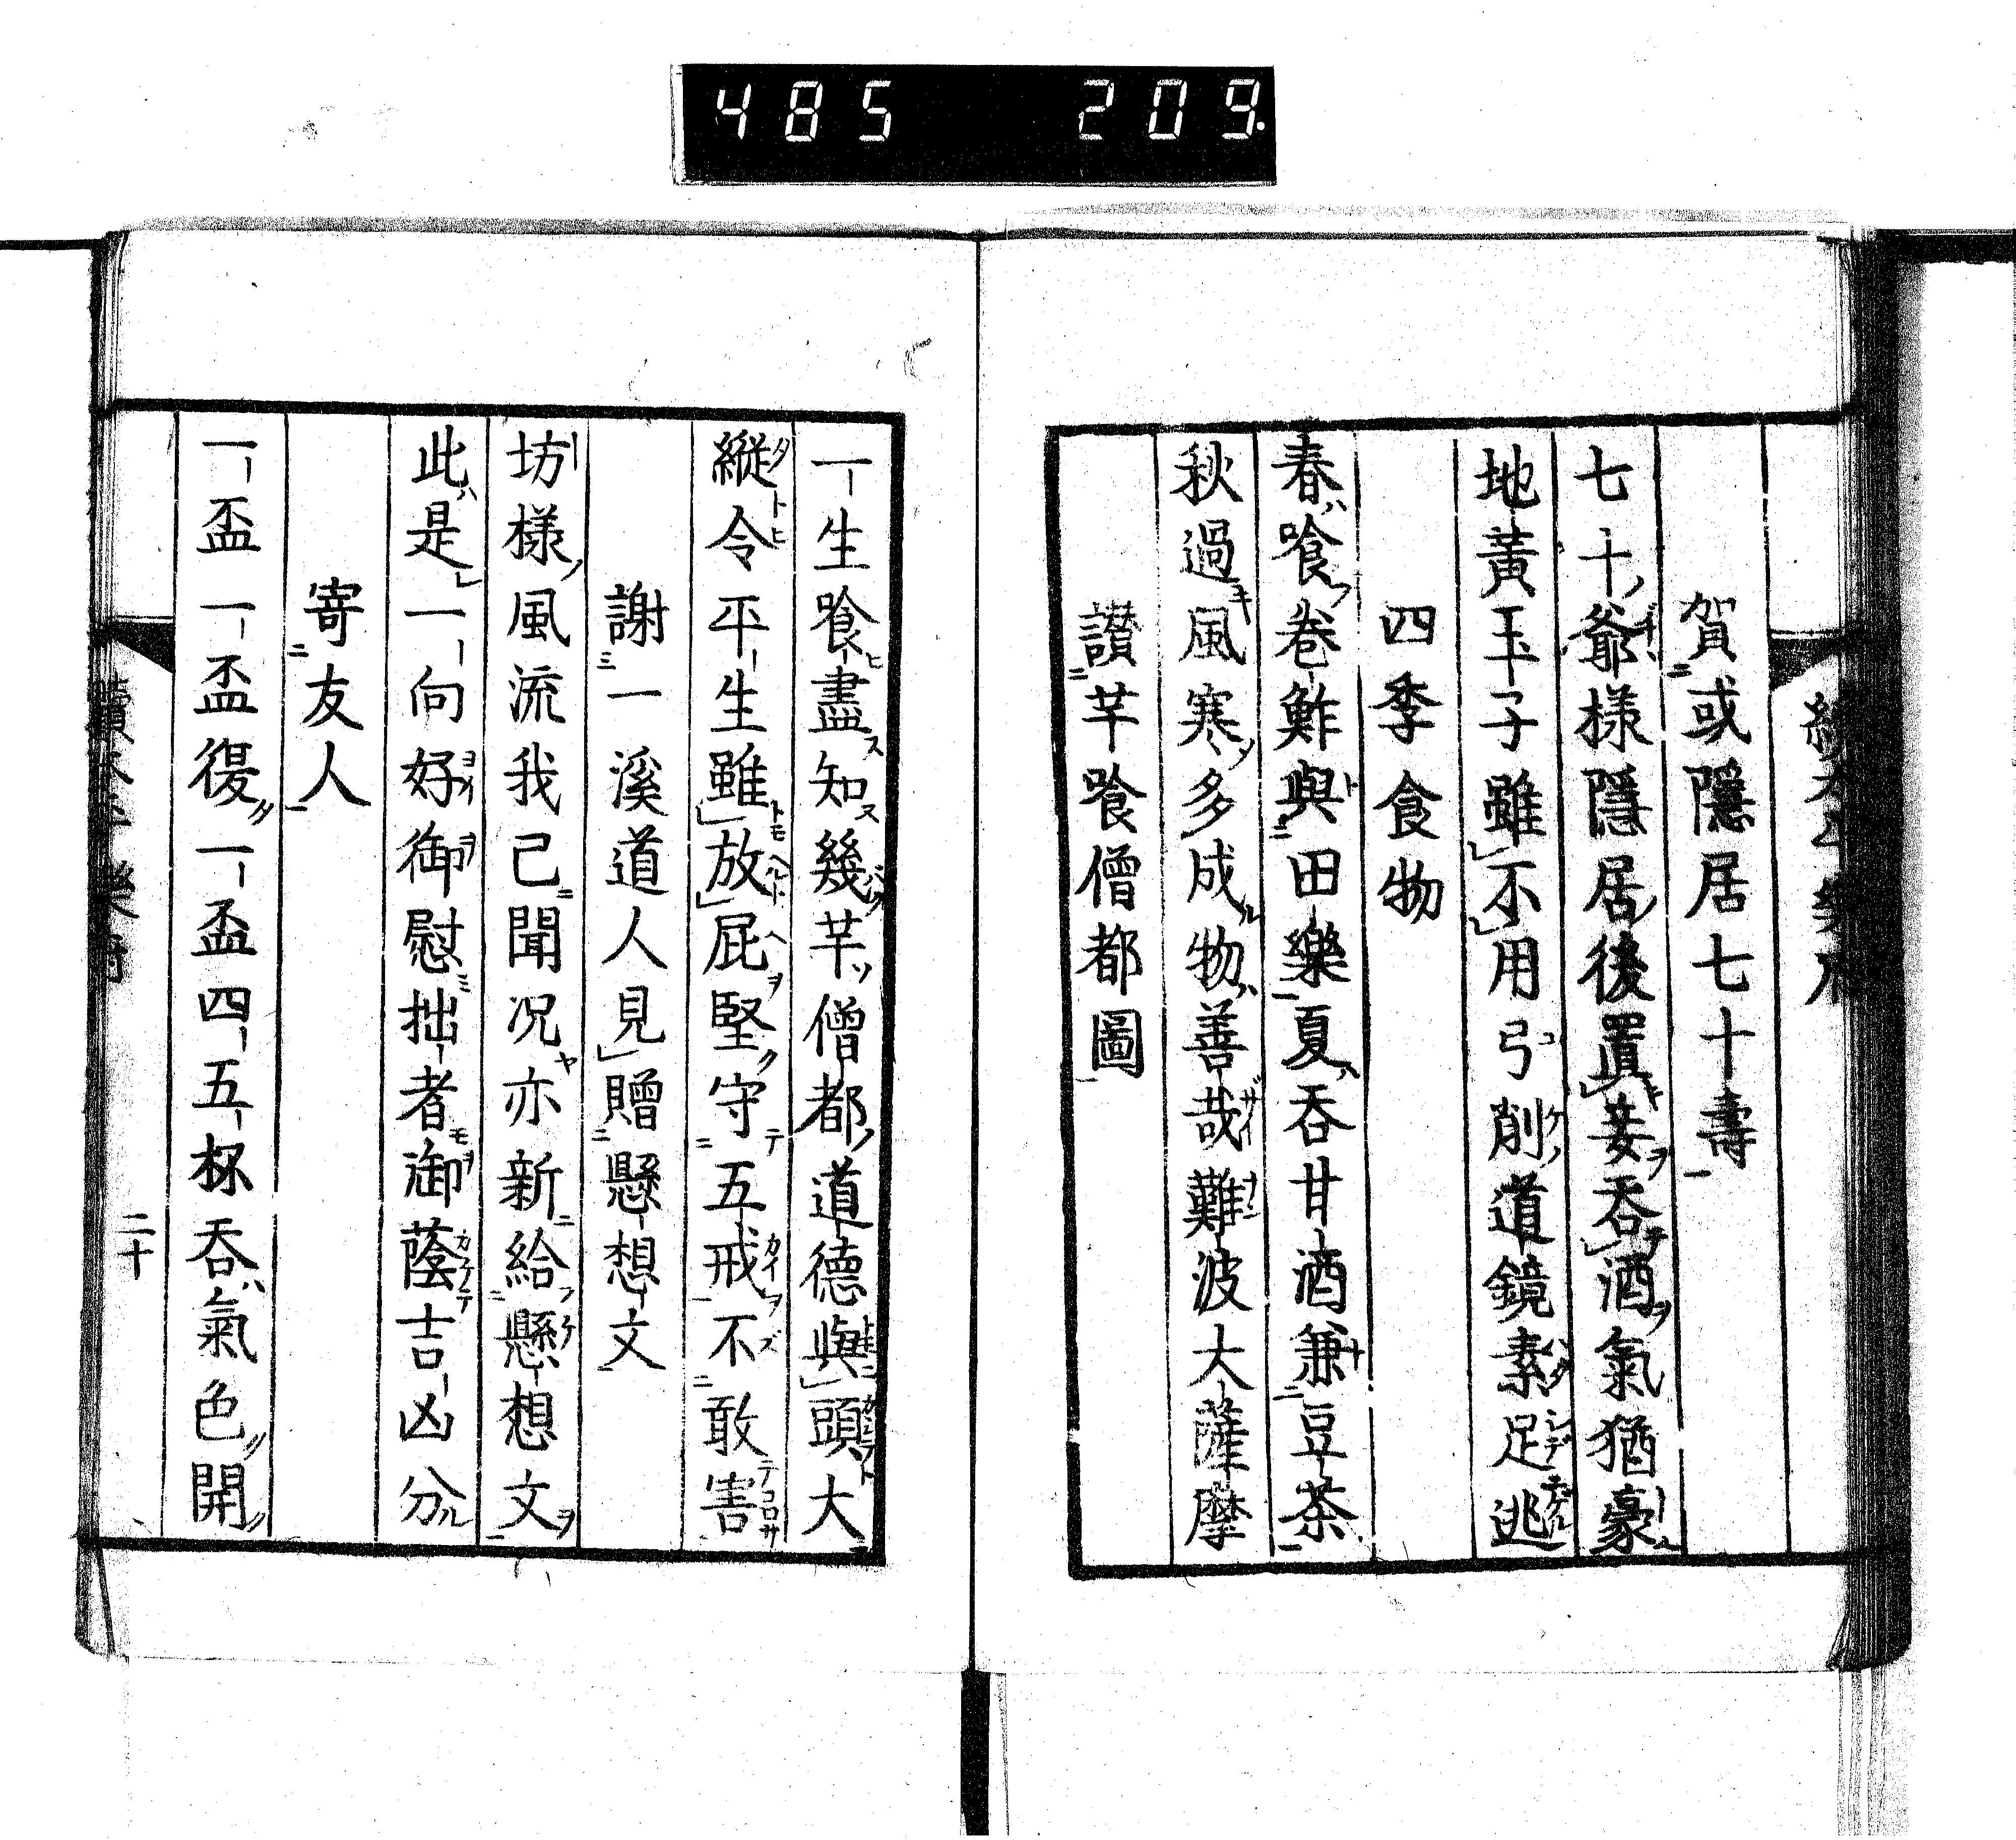 485 209.
賀或隱居七十壽
七十爺樣隱居後置妾吞酒氣猶豪
地黃玉子雖不用弓削道鏡素足逃
四季食物
春喰卷鮓與田樂夏吞甘酒兼豆茶
秋過風寒多成物善哉難波大薩摩
讃芋喰僧都圖
一生喰盡知幾芋僧都道德與頭大
縱令平生雖放屁堅守五戒不敢害
謝一溪道人見贈懸想文
坊樣風流我已聞況亦新給懸想文
此是一向好御慰拙者御蔭吉凶分
寄友人
一盃一盃復一盃四五杯吞氣色開
二十